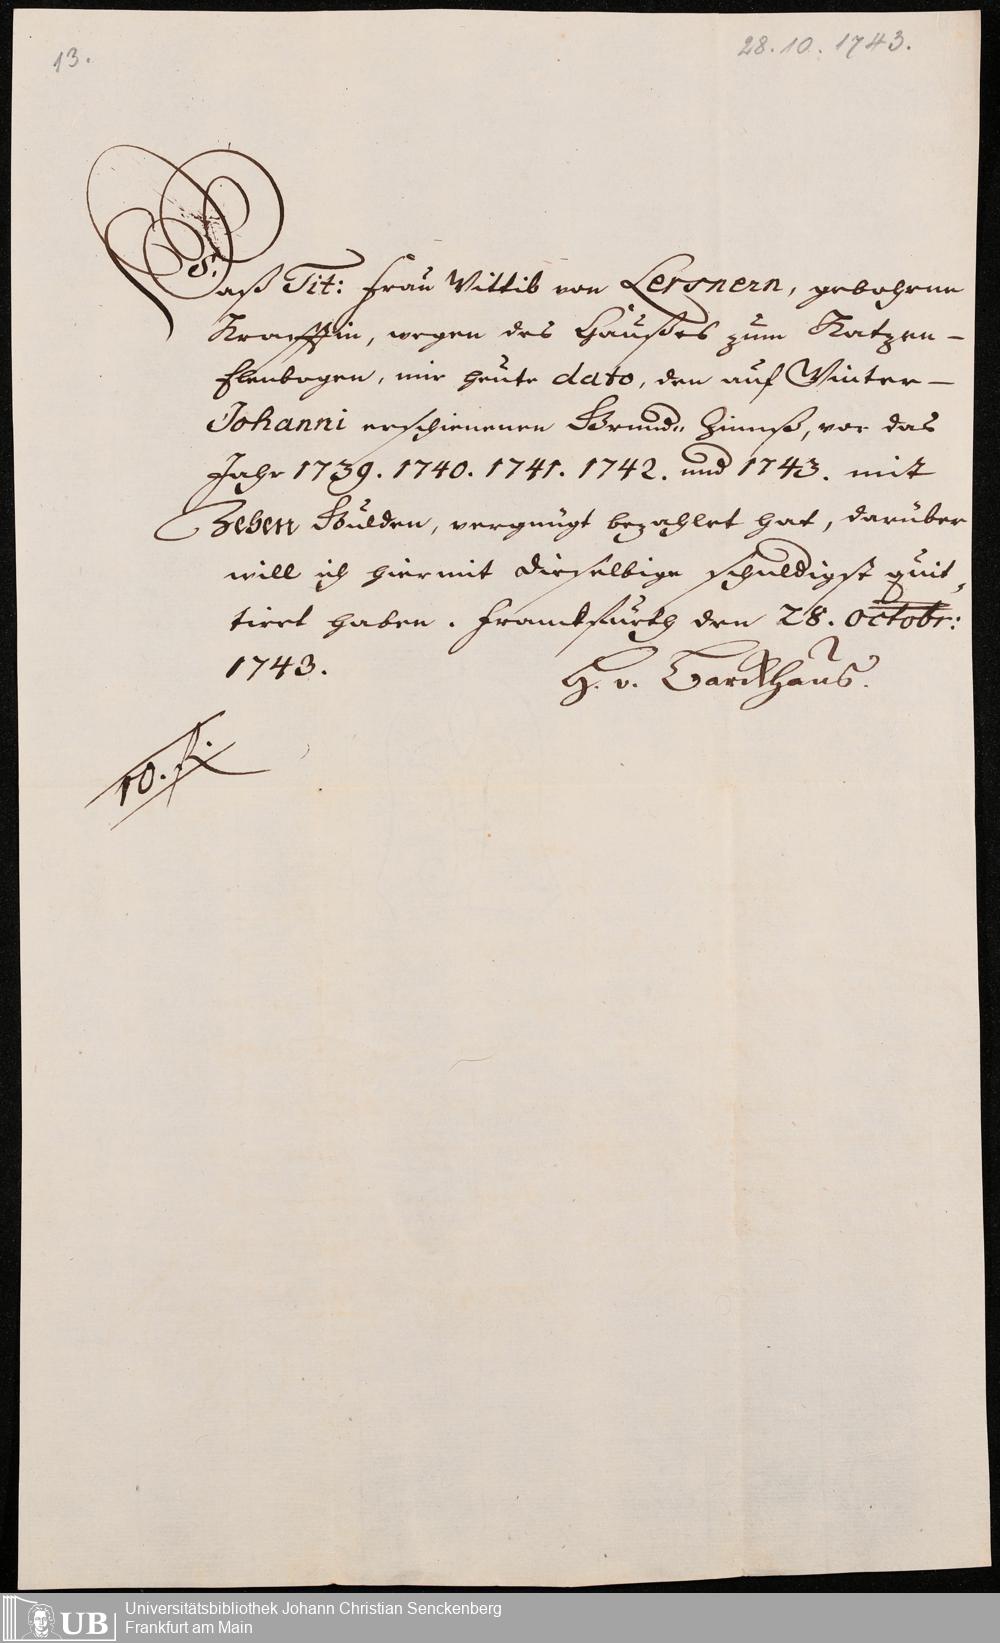 13.
28. 10. 1743.
Daß Tit: Frau Wittib von Lersnern, gebohrne
Krafftin, wegen des Haußes zum Katzen-
Elenbogen, mir heute dato, den auf Winter-
Johanni erschienenen Grund„ Zinnß, vor das
Jahr 1739. 1740. 1741. 1742. und 1743. mit
Zehen Gulden, vergnügt bezahlet hat, darüber
will ich hiermit dieselbige schuldigst quit„
tiret haben. Franckfurth den 28. octobr:
1743.
H. v. Barckhaus.
10. f.
UB
Universitätsbibliothek Johann Christian Senckenberg
Frankfurt am Main